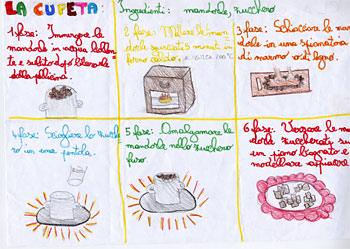 LA CUPETA:
Ingredienti: mandorle, zucchero
1 fase: Immergere le
mandorle in acqua bollen
te e subito dopo liberarle
dalla pellicina.
2 fase: Mettere le man
dorle
minuti in
forno caldo a 200°C
3 fase: Schiacciare le man
dorle in una spianatoia
di marmo o di legno.
4 fase: Sciogliere lo zucche
ro in una pentola.
5 fase: Amalgamare le
mandorle nello zucchero
fuso.
6 fase: Versare le man
dorle zuccherate su
un piano bagnato e
modellare